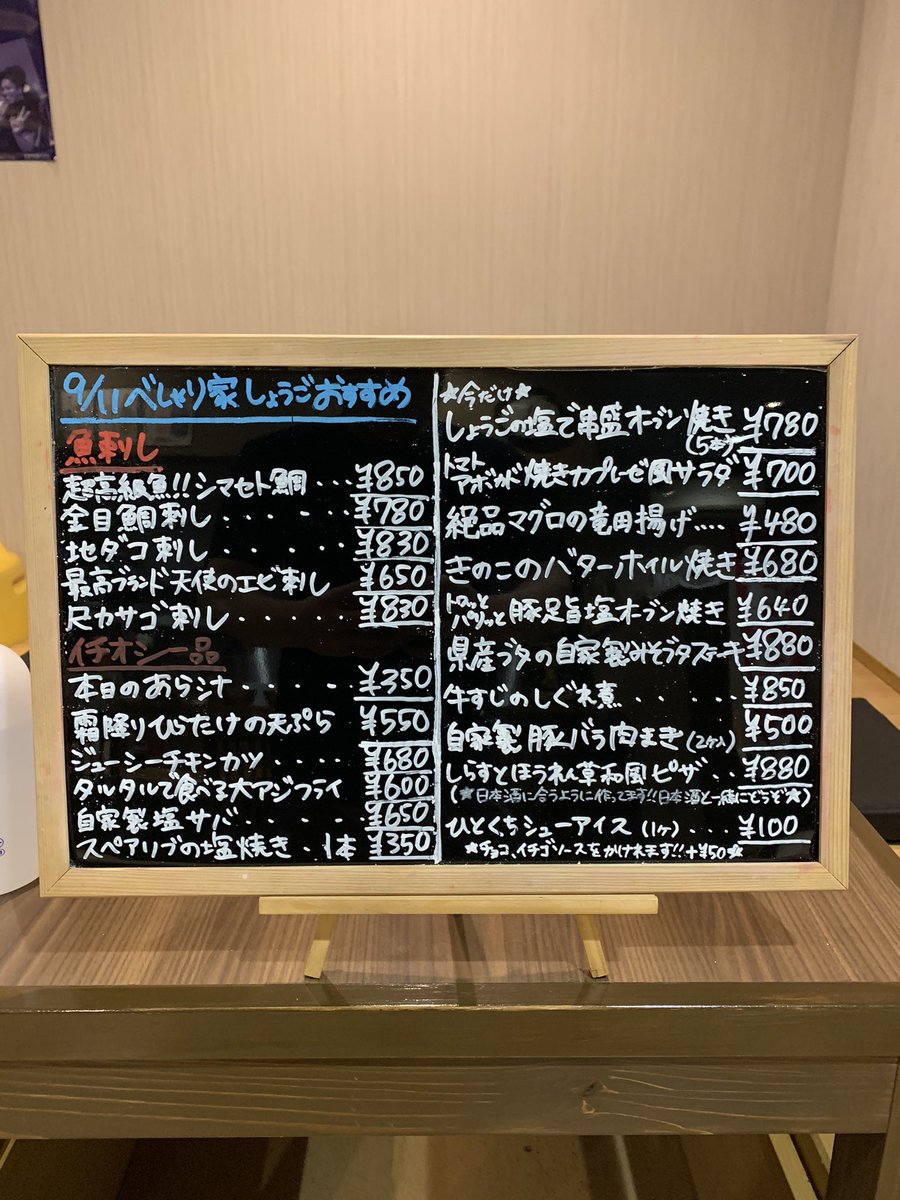 9/11 べしゃり家しょうごおすすめ
魚刺し
超高級魚!!シマセトダイ鯛...¥850
金目鯛刺し.....¥780
地ダコ刺し.....¥830
最高ブランド天使のエビ刺し ¥650
尺カサゴ刺し ¥830
イチオシ一品
本日のあら汁.....¥350
霜降りひらたけの天ぷら ¥550
ジューシーチキンカツ....¥680
タルタルで食べる大アジフライ ¥600
自家製塩サバ...¥650
スペアリブの塩焼き・1本 ¥350
★今だけ★
しょうごの塩で串盛オーブン焼き(5本) ¥780
トマトアボカド焼きカプレーゼ風サラダ ¥700
絶品マグロの竜田揚げ....¥480
きのこのバターホイル焼き ¥680
トロッとパリッと豚足旨塩オーブン焼き ¥640
県産ブタの自家製みそブタステーキ ¥880
牛すじのしぐれ煮...¥850
自家製豚バラ肉まき(2ケ入) ¥500
しらすとほうれん草和風ピザ..¥880
(★日本酒に合うように作ってます!!日本酒と一緒にどうぞ★)
ひとくちシューアイス(1ケ)...¥100
★チョコ、イチゴソースをかけれます!!+¥50★